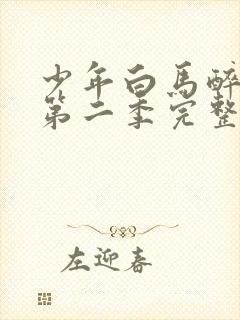 少年白马醉
第二季完整
左迎春